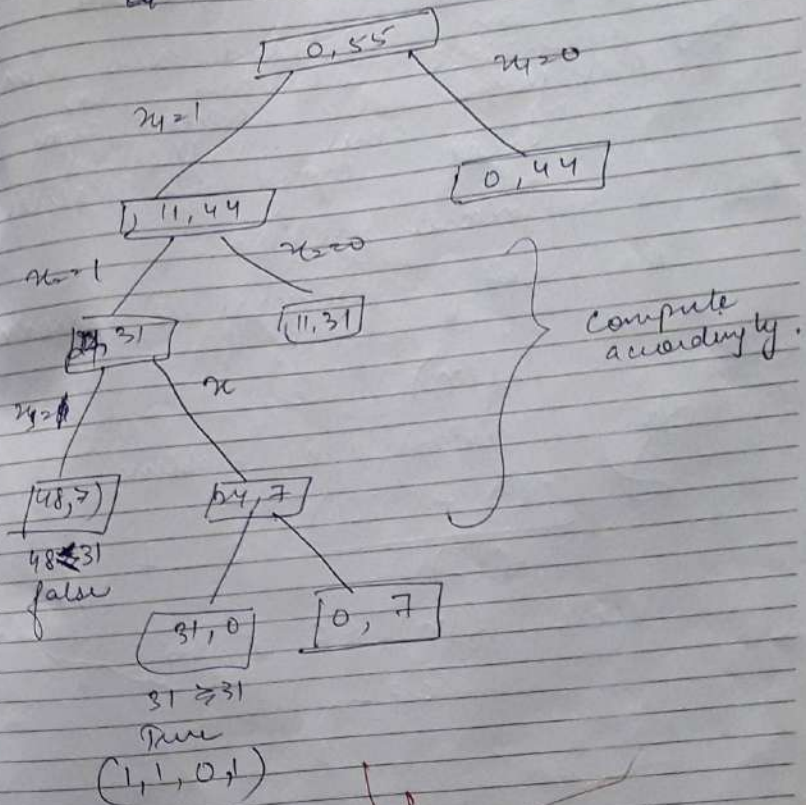 0,55
x1=1
x1=0
11,44
0,44
x2=1
x2=0
31
11,31
Compute
accordingly.
x3=1
x
48,7
24,7
48≤31
false
31,0
0,7
31≥31
True
(1,1,0,1)